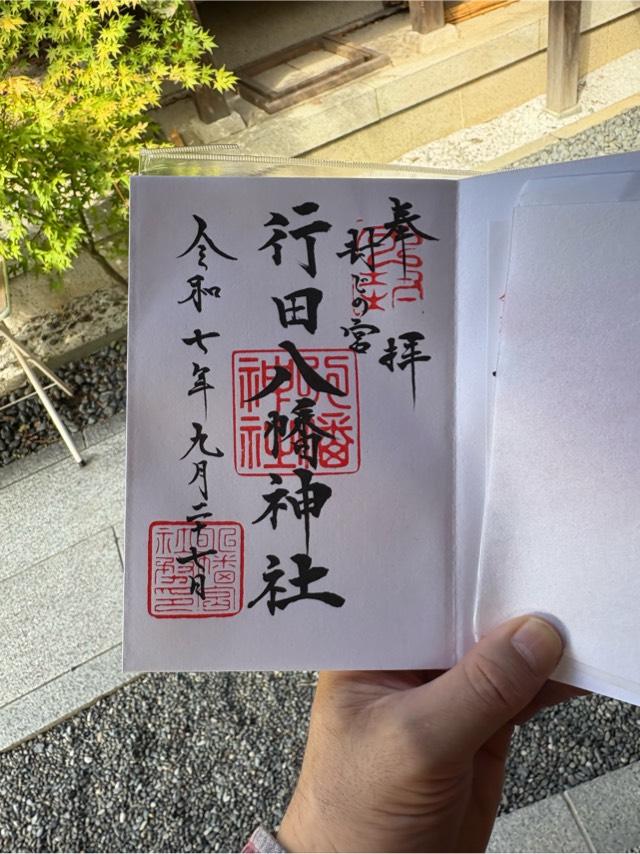 奉拝
封じの宮
行田八幡神社
令和七年九月二十七日
八幡神社